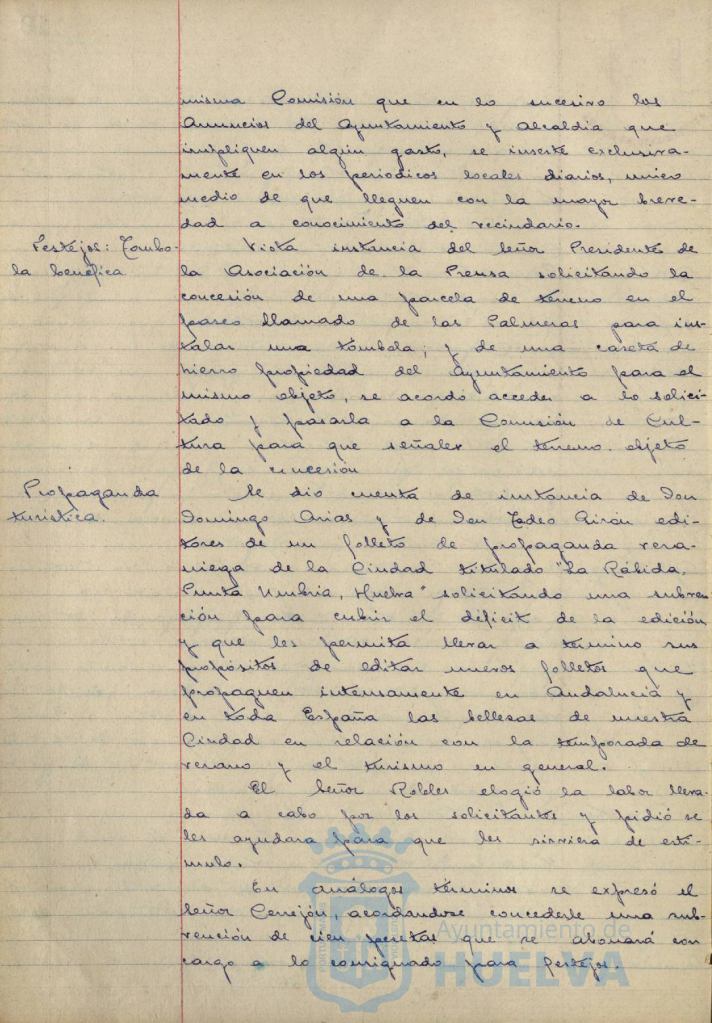 misma Comisión que en lo sucesivo los
Anuncios del Ayuntamiento y Alcaldia que
impliquen algún gasto, se inserte exclusiva-
mente en los periodicos locales diarios, unico
medio de que lleguen con la mayor breve-
dad a conocimiento del vecindario.
Festejos: Tombo-
la benefica
Vista instancia del Señor Presidente de
la Asociación de la Prensa solicitando la
concesión de una parcela de terreno en el
paseo llamado de las Palmeras para ins-
talar una tómbola; y de una caseta de
hierro propiedad del Ayuntamiento para el
mismo objeto, se acordó acceder a lo solici-
tado y pasarla a la Comisión de Cul-
tura para que señale el terreno objeto
de la concesión
Propaganda
turistica.
Se dio cuenta de instancia de Don
Domingo Arias y de Don Tadeo Girón edi-
tores de un folleto de propaganda vera-
niega de la Ciudad titulado "La Rábida,
Punta Umbria, Huelva" solicitando una subven
ción para cubrir el déficit de la edición
y que les permita llevar a termino sus
propósitos de editar nuevos folletos que
propaguen intensamente en Andalucia y
en toda España las bellesas de nuestra
Ciudad en relación con la temporada de
verano y el turismo en general.
El Señor Robles elogió la labor lleva-
da a cabo por los solicitantes y pidió se
les ayudara para que les sirviera de esti-
mulo.
En análogos términos se expresó el
Señor Cerrejón, acordandose concederle una sub-
vención de cien pesetas que se abonará con
cargo a lo consignado para festejos.
Ayuntamiento de
HUELVA